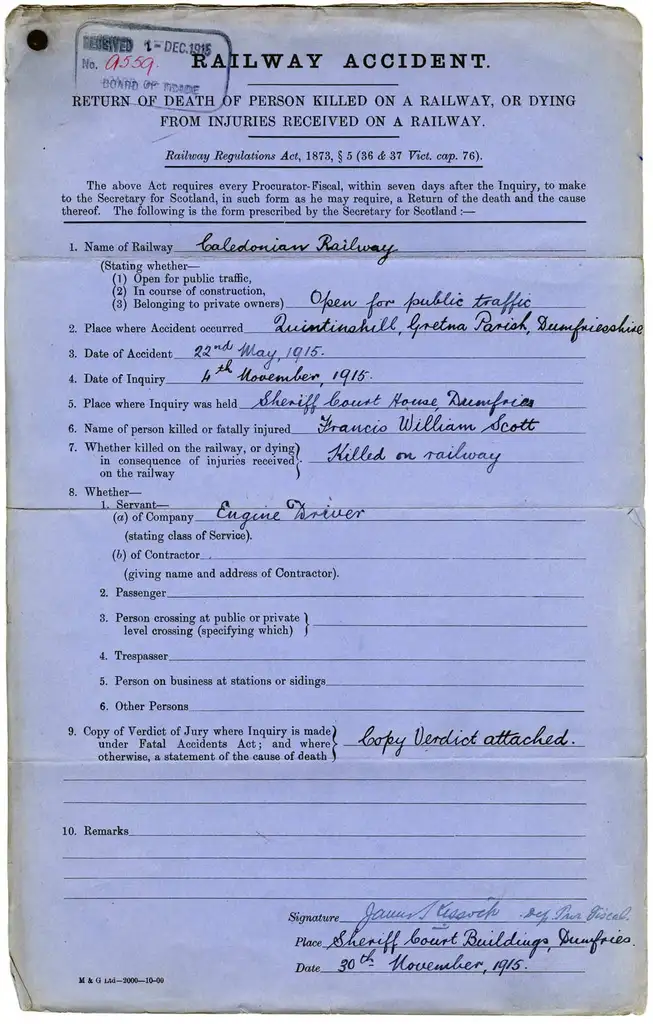 RECEIVED 1-DEC.1915
No. 9559.
BOARD OF TRADE
RAILWAY ACCIDENT.
RETURN OF DEATH OF PERSON KILLED ON A RAILWAY, OR DYING
FROM INJURIES RECEIVED ON A RAILWAY.
Railway Regulations Act, 1873, § 5 (36 & 37 Vict. cap. 76).
The above Act requires every Procurator-Fiscal, within seven days after the Inquiry, to make
to the Secretary for Scotland, in such form as he may require, a Return of the death and the cause
thereof. The following is the form prescribed by the Secretary for Scotland :—
1. Name of Railway Caledonian Railway
(Stating whether—
(1) Open for public traffic,
(2) In course of construction,
(3) Belonging to private owners) Open for public traffic
2. Place where Accident occurred Quintinshill, Gretna Parish, Dumfriesshire
3. Date of Accident 22nd May, 1915.
4. Date of Inquiry 4th November, 1915.
5. Place where Inquiry was held Sheriff Court House, Dumfries
6. Name of person killed or fatally injured Francis William Scott
7. Whether killed on the railway, or dying
in consequence of injuries received Killed on railway
on the railway
8. Whether—
1. Servant—
(a) of Company Engine Driver
(stating class of Service).
(b) of Contractor
(giving name and address of Contractor).
2. Passenger
3. Person crossing at public or private
level crossing (specifying which)
4. Trespasser
5. Person on business at stations or sidings
6. Other Persons
9. Copy of Verdict of Jury where Inquiry is made
under Fatal Accidents Act; and where Copy Verdict attached.
otherwise, a statement of the cause of death
10. Remarks
Signature Dep Pro. Fiscal.
Place Sheriff Court Buildings, Dumfries.
Date 30th November, 1915.
M & G Ltd—2000—10-00